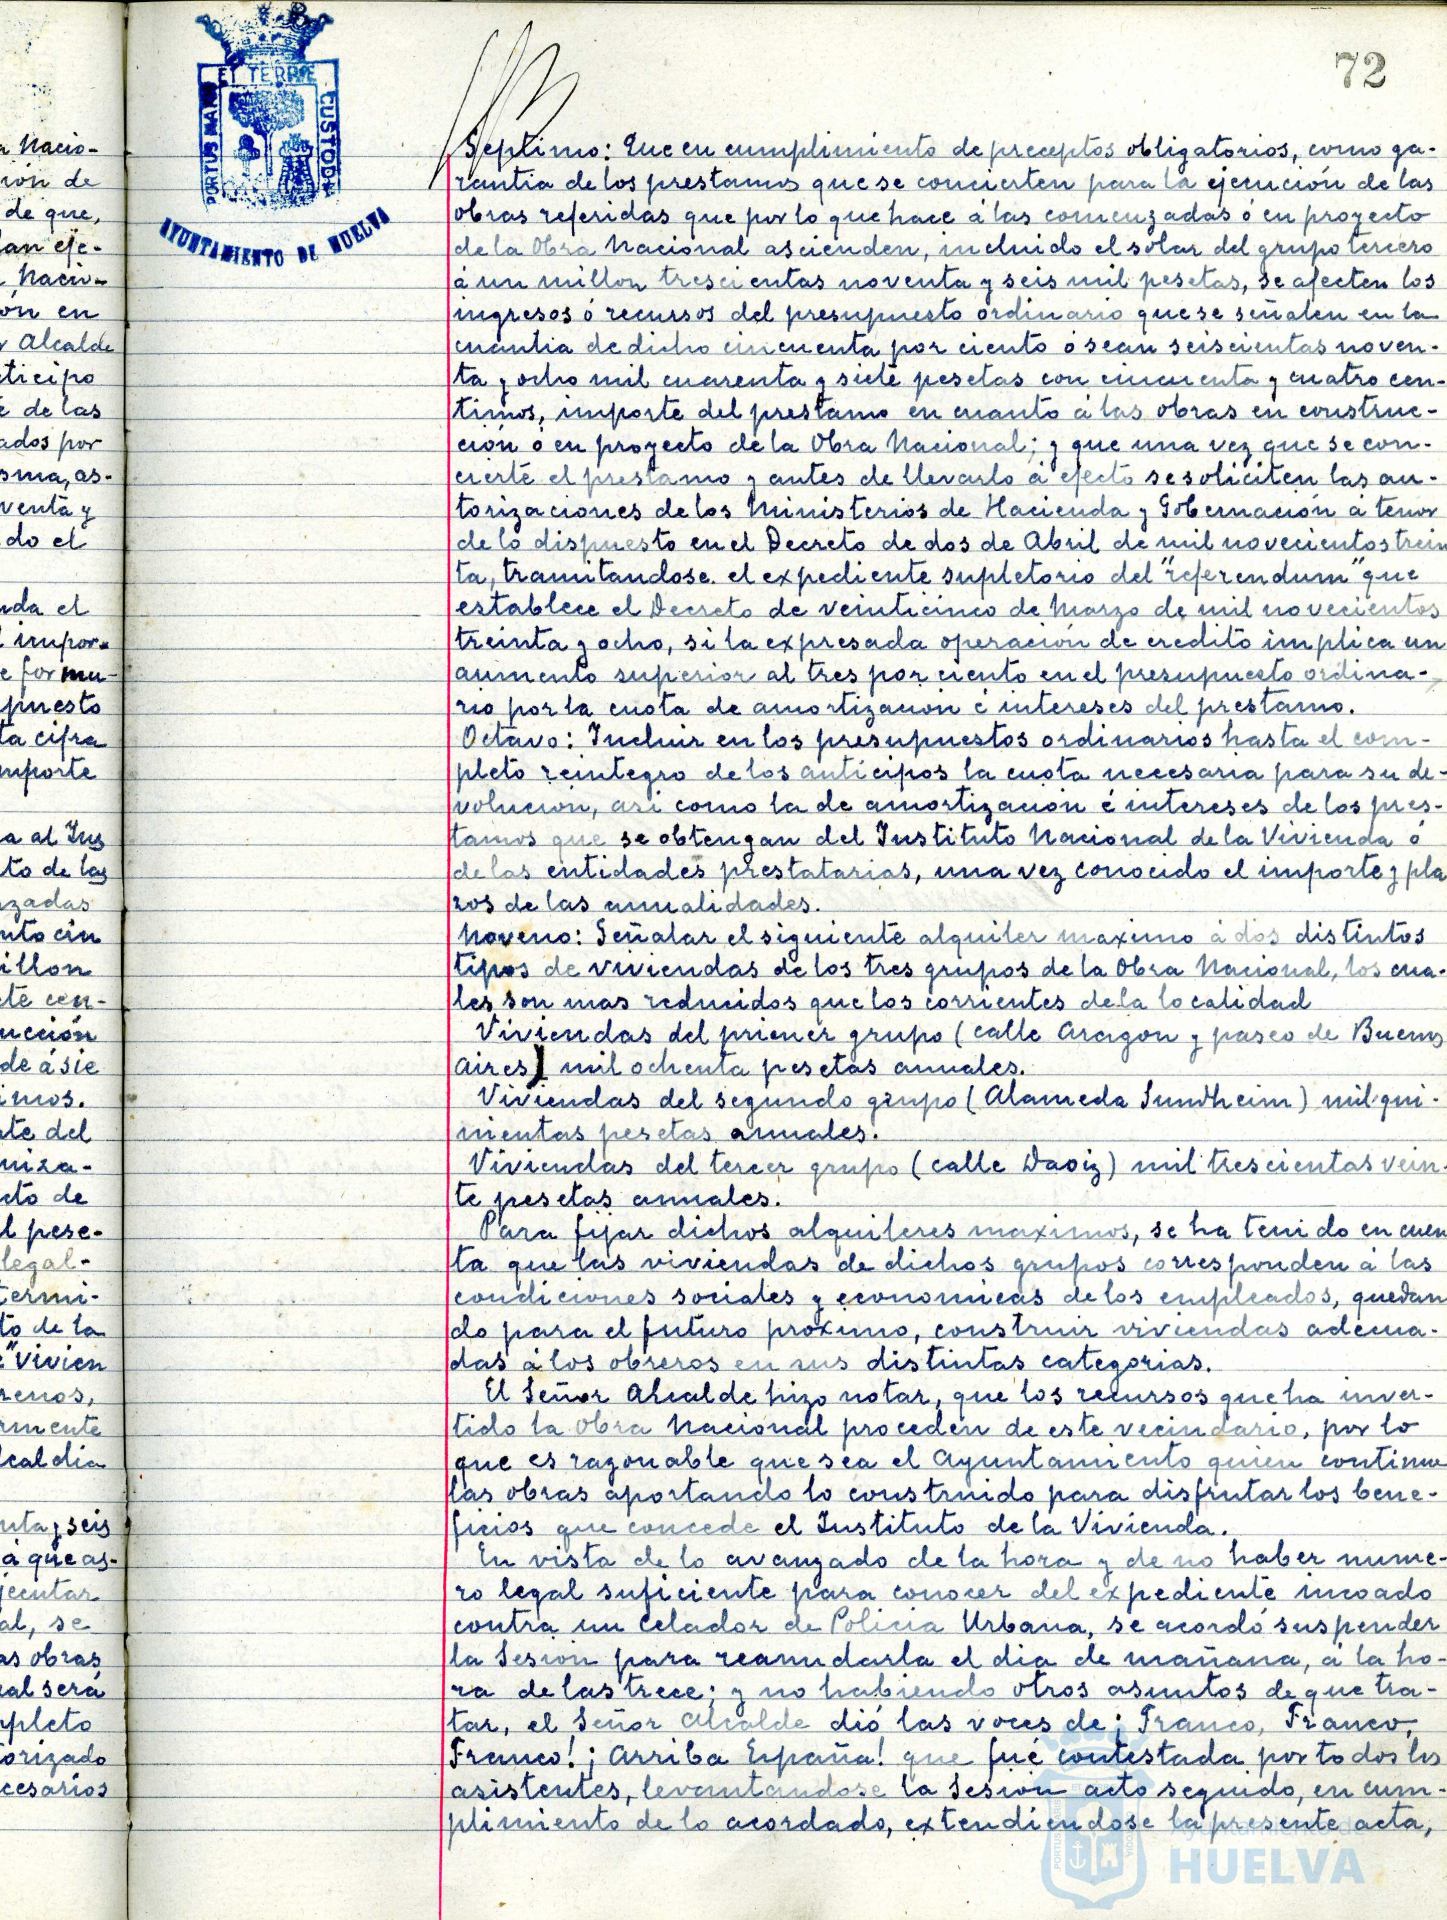 72
ET TERRÆ
PORTUS MARIS
CUSTODIA
AYUNTAMIENTO DE HUELVA
a Nacio-
ción de
de que,
dan eje-
a Nacio-
ón en
r Alcalde
ticipo
e de las
ados por
sma, as-
venta y
do el
nda el
l impor-
e formu-
puesto
ta cifra
mporte
a al Ins
to de las
nzadas
nto cin
illon
ete cen-
ucción
de á sie
imos.
te del
niza-
cto de
l pese-
legal-
termi-
to de la
e "Vivien
renos,
rmente
lcaldia
nta y seis
á que as-
jecutar
al, se
as obras
ual será
mpleto
torizado
cesarios
Septimo: Que en cumplimiento de preceptos obligatorios, como ga-
rantia de los prestamos que se concierten para la ejecución de las
obras referidas que por lo que hace á las comenzadas ó en proyecto
de la Obra Nacional ascienden, incluido el solar del grupo tercero
á un millon trescientas noventa y seis mil pesetas, se afecten los
ingresos ó recursos del presupuesto ordinario que se señalen en la
cuantia de dicho cincuenta por ciento ó sean seiscientas noven-
ta y ocho mil cuarenta y siete pesetas con cincuenta y cuatro cen-
timos, importe del prestamo en cuanto á las obras en construc-
ción ó en proyecto de la Obra Nacional; y que una vez que se con-
cierte el prestamo y antes de llevarlo á efecto se soliciten las au-
torizaciones de los Ministerios de Hacienda y Gobernación á tenor
de lo dispuesto en el Decreto de dos de Abril de mil novecientos trein
ta, tramitandose el expediente supletorio del "referendum" que
establece el Decreto de veinticinco de Marzo de mil novecientos
treinta y ocho, si la expresada operación de credito implica un
aumento superior al tres por ciento en el presupuesto ordina-
rio por la cuota de amortización é intereses del prestamo.
Octavo: Incluir en los presupuestos ordinarios hasta el com-
pleto reintegro de los anticipos la cuota necesaria para su de-
volución, asi como la de amortización é intereses de los pres-
tamos que se obtengan del Instituto Nacional de la Vivienda ó
de las entidades prestatarias, una vez conocido el importe y pla
zos de las anualidades.
Noveno: Señalar el siguiente alquiler maximo á dos distintos
tipos de viviendas de los tres grupos de la Obra Nacional, los cua-
les son mas reducidos que los corrientes de la localidad
Viviendas del primer grupo (calle Aragon y paseo de Buenos
Aires) mil ochenta pesetas anuales.
Viviendas del segundo grupo (Alameda Sundheim) mil qui-
nientas pesetas anuales.
Viviendas del tercer grupo (calle Daoiz) mil trescientas vein-
te pesetas anuales.
Para fijar dichos alquileres maximos, se ha tenido en cuen
ta que las viviendas de dichos grupos corresponden á las
condiciones sociales y economicas de los empleados, quedan
do para el futuro proximo, construir viviendas adecua-
das á los obreros en sus distintas categorias.
El Señor Alcalde hizo notar, que los recursos que ha inver-
tido la Obra Nacional proceden de este vecindario, por lo
que es razonable que sea el Ayuntamiento quien continue
las obras aportando lo construido para disfrutar los bene-
ficios que concede el Instituto de la Vivienda.
En vista de lo avanzado de la hora y de no haber nume-
ro legal suficiente para conocer del expediente incoado
contra un Celador de Policia Urbana, se acordó suspender
la Sesión para reanudarla el dia de mañana, á la ho-
ra de las trece; y no habiendo otros asuntos de que tra-
tar, el Señor Alcalde dió las voces de ¡Franco, Franco,
Franco! ¡Arriba España! que fué contestada por todos los
asistentes, levantandose la Sesión acto seguido, en cum-
plimiento de lo acordado, extendiendose la presente acta,
Ayuntamiento de
HUELVA